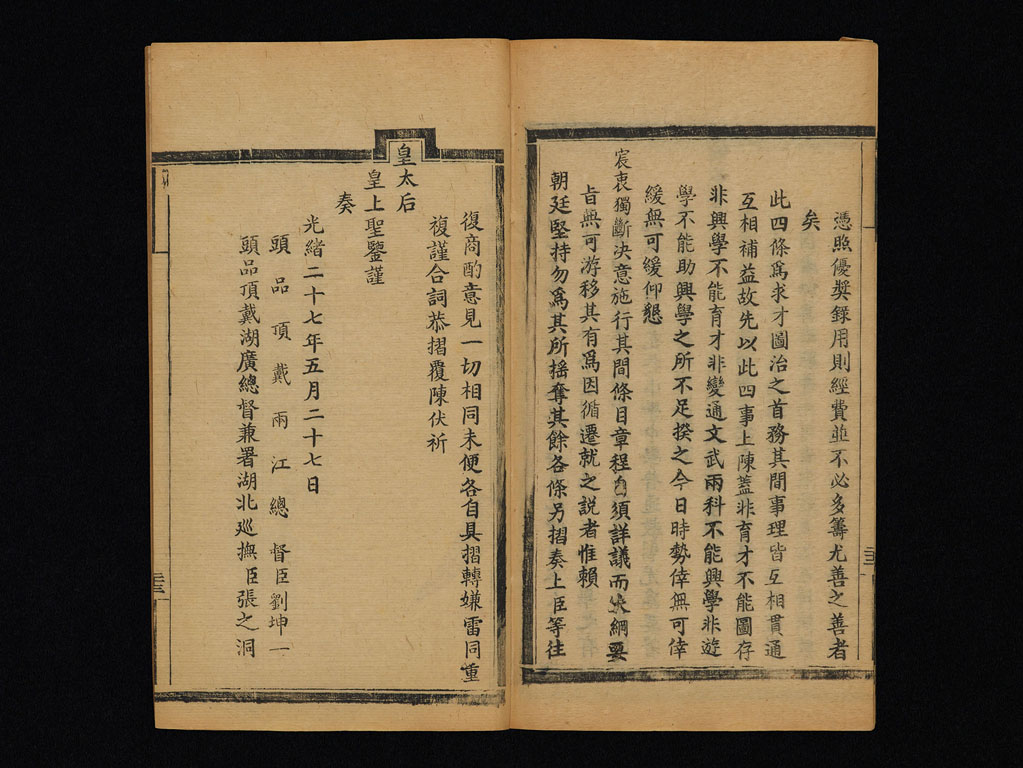 憑照優奬錄用則經費並不必多籌尤善之善者
矣
此四條爲求才圖治之首務其間事理皆互相貫通
互相補益故先以此四事上陳蓋非育才不能圖存
非興學不能育才非變通文武兩科不能興學非遊
學不能助興學之所不足揆之今日時勢倖無可倖
緩無可緩仰懇
宸衷獨斷決意施行其間條目章程自須詳議而大綱要
旨無可游移其有爲因循遷就之説者惟賴
朝廷堅持勿爲其所搖奪其餘各條另摺奏上臣等往
復商酌意見一切相同未便各自具摺轉嫌雷同重
複謹合詞恭摺覆陳伏祈
皇太后
皇上聖鑒謹
奏
光緒二十七年五月二十七日
頭品頂戴兩江總督臣劉坤一
頭品頂戴湖廣總督兼署湖北巡撫臣張之洞